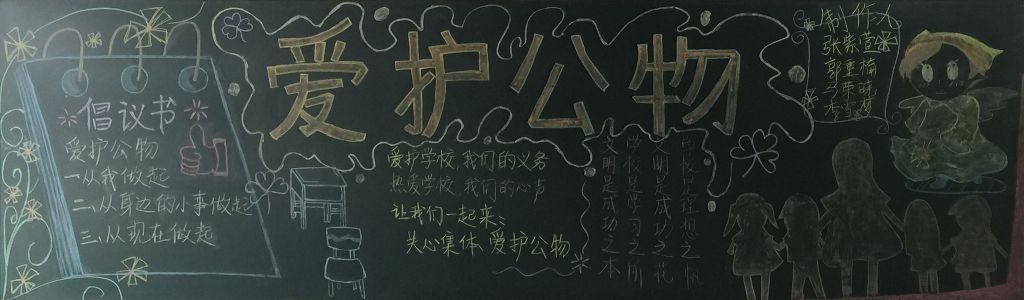 爱护公物
倡议书
爱护公物
一从我做起
二、从身边的小事做起
三、从现在做起
爱护学校,我们的义务
热爱学校,我们的心声
让我们一起来:
关心集体、爱护公物
学校是理想之帆
文明是成功之花
学校是学习之所
文明是成功之本
制作人